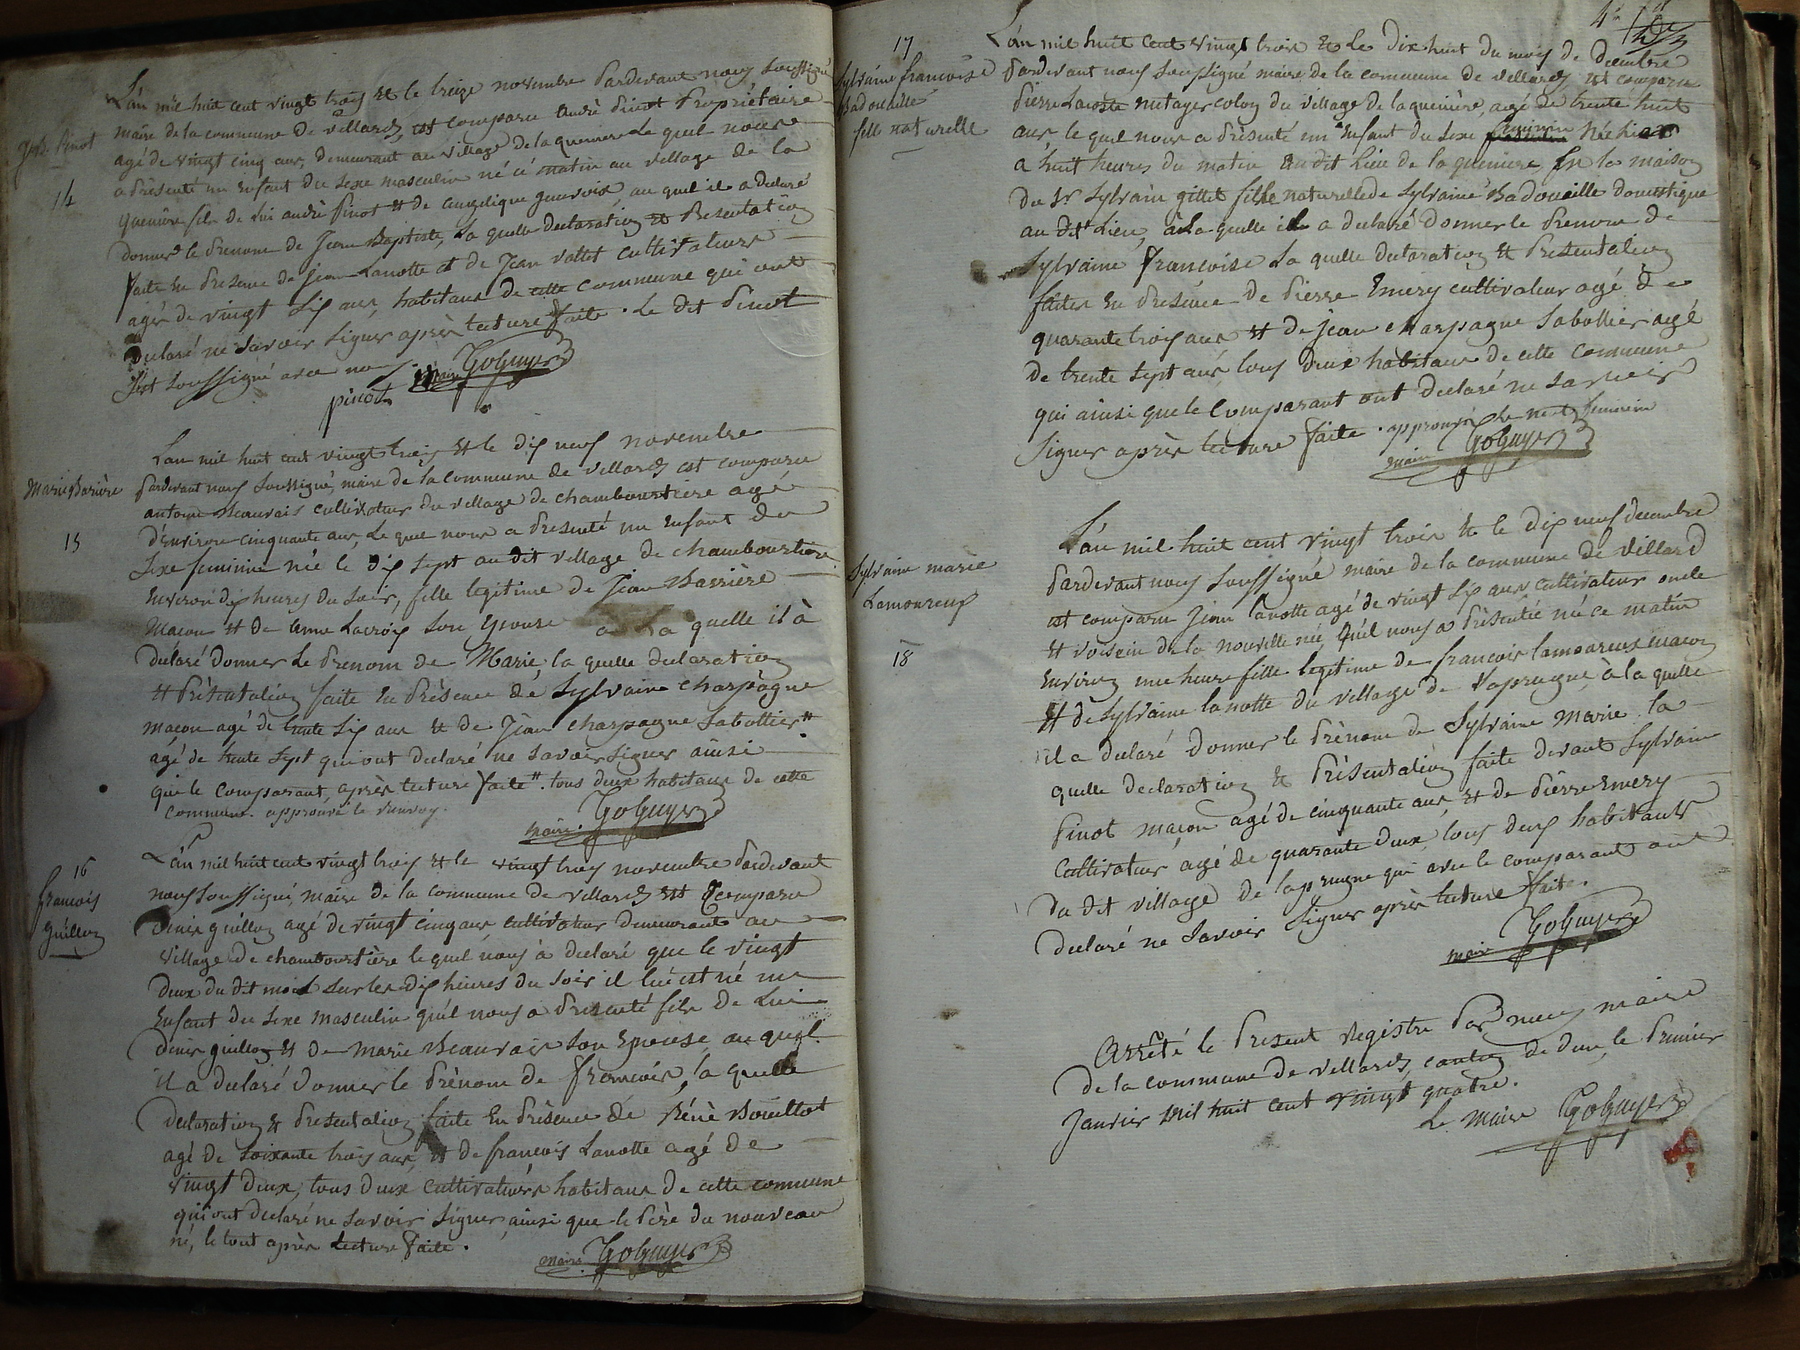 Jph. Pinot
14
L'an mil huit cent vingt trois et le treize novembre Pardevant nous soussigné
maire de la commune de Villard, est comparu andré Pinot Propriétaire
agé de vingt cinq ans, demeurant au village de la quenière Le quel nous
a Présenté un Enfant du Sexe masculin né ce matin au village de la
quenière fils de lui andré Pinot et de angelique au quel il a déclaré
donner le Prenom de Jean Baptiste, La quelle declaration et Presentation
faite En Présence de Jean Lanotte et de Jean vallet cultivateurs
agés de vingt six ans, habitans de cette commune qui ont
declaré ne Savoir Signer après lecture faite. Le dit Pinot
s'est soussigné avec nous
pinot maire Goguyer
Marie Barière
15
L'an mil huit cent vingt trois et le dix neuf novembre
Pardevant nous Soussigné, maire de la commune de villard est comparu
antoine Beauvais cultivateur du village de chamboursière agé
d'Environ cinquante ans, Le quel nous a Presenté un Enfant du
Sexe feminin née le dix sept au dit village de chamboursière
Environ dix heures du Soir, fille legitime de Jean Barrière
Macon et de anne Lacroix Son Epouse a La quelle il à
déclaré donner Le Prenom de Marie, la quelle declaration
et Présentation faite En Présence de Sylvaine charpagne
maçon agé de trente six ans et de Jean charpagne Sabottier #
agé de trente Sept qui ont declaré ne Savoir Signer ainsi
que le Comparant, après lecture faite. # tous deux habitans de cette
commune. approuvé le renvoy.
maire. Goguyer
16
francois
guillon
L'an mil huit cent vingt trois et le vingt trois novembre Pardevant
nous Soussigné, maire de la commune de villard est Comparu
Denis guillon agé de vingt cinq ans cultivateur demeurant au
village de chamboursière le quel nous à declaré que le vingt
deux du dit mois sur les dix heures du Soir il lui est né un
Enfant du Sexe masculin qu'il nous a Presenté fils de Lui
Denis guillon et de Marie Beauvais Son Epouse, au quel
il a declaré donner le Prénom de francois, la quelle
Declaration et Presentation faite En Présence de Réné Bouillot
agé de Soixante trois ans, et de francois Lanotte agé de
vingt deux, tous deux cultivateurs habitans de cette commune
qui ont declaré ne Savoir Signer, ainsi que le Père du nouveau
né, le tout après lecture faite.
maire. Goguyer
17
Sylvaine francoise
Badouaille
fille naturelle
L'an mil huit cent vingt trois et Le Dix huit du mois de Décembre
Pardevant nous Soussigné maire de la commune de villard, est comparu
Pierre Lanotte metayer colon du village de la quenière, agé de trente huit
ans, le quel nous a Présenté un Enfant du Sexe feminin Née hier
a huit heures du matin au dit lieu de la queniere En la maison
du Sr Sylvain gillet fille naturelle de Sylvaine Badouaille domestique
au dit Lieu, à La quelle il a declaré donner le Prenom de
Sylvaine francoise La quelle declaration et Presentation
faites En Présence de Pierre Emery cultivateur agé de
quarante trois ans et de Jean charpagne Sabottier agé
de trente Sept ans, tous deux habitans de cette commune
qui ainsi que le Comparant ont declaré ne Savoir
Signer après lecture faite. approuvé le mot feminin
maire Goguyer
Sylvaine marie
Lamoureux
18
L'an mil huit cent vingt trois et le dix neuf decembre
Pardevant nous Soussigné maire de la commune de villard
est comparu Jean lanotte agé de vingt six ans cultivateur oncle
et voisin de la nouvelle née, qu'il nous a Présentée née ce matin
Environ une heure fille legitime de francois lamoureux macon
et de Sylvaine lanotte du village de Laprugne, à la quelle
il a declaré donner le Prénom de Sylvaine Marie. la
quelle declaration et Présentation faite devant Sylvain
Pinot maçon agé de cinquante ans et de Pierre Emery
cultivateur, agé de quarante deux, tous deux habitants
du dit village de laprugne qui avec le comparant ont
declaré ne Savoir Signer après lecture faite.
maire Goguyer
Arrêté le Present registre Par nous maire
de la commune de villard, canton de dun, le Premier
Janvier mil huit cent vingt quatre.
Le Maire Goguyer